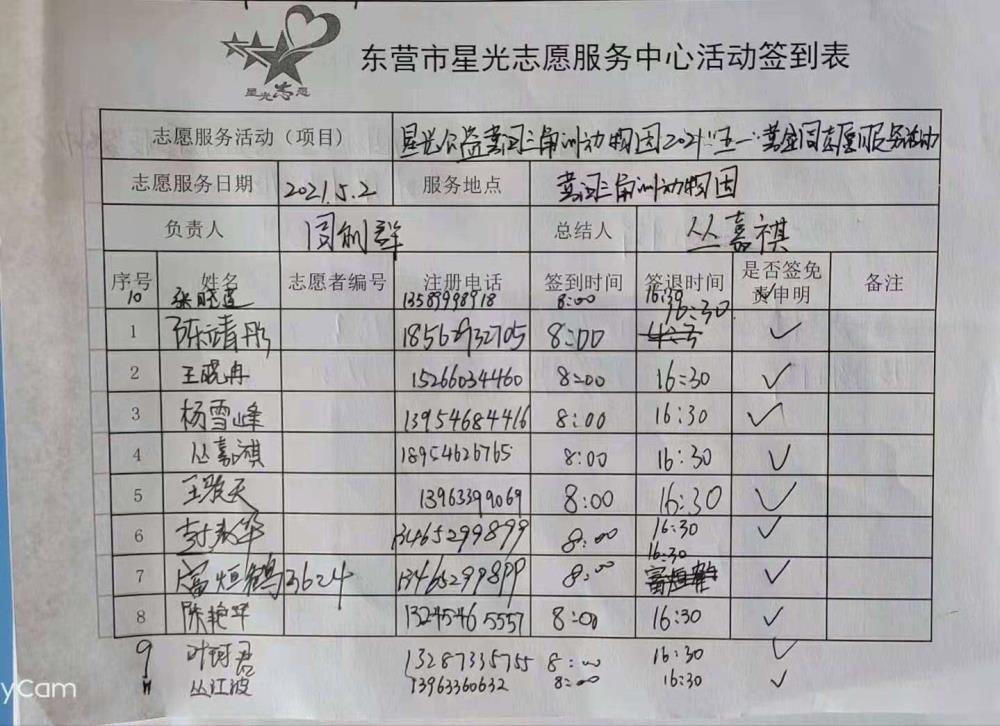 星光志愿
东营市星光志愿服务中心活动签到表
志愿服务活动（项目） 星光公益黄河三角洲动物园2021"五一"黄金周志愿服务活动
志愿服务日期 2021.5.2 服务地点 黄河三角洲动物园
负责人 周刚群 总结人 丛嘉祺
序号 姓名 志愿者编号 注册电话 签到时间 签退时间 是否签免责申明 备注
10 张晓莲 13589998918 8:00 16:30 ✓
1 陈靖彤 18562932705 8:00 16:30 ✓
2 王晓冉 15266034460 8:00 16:30 ✓
3 杨雪峰 13954684416 8:00 16:30 ✓
4 丛嘉祺 18954626765 8:00 16:30 ✓
5 王浩天 13963399069 8:00 16:30 ✓
6 13465299899 8:00 16:30 ✓
7 富恒鹤 13624 13465299899 8:00 16:30 ✓
8 陈艳华 13245465557 8:00 16:30 ✓
9 13287335755 8:00 16:30 ✓
11 丛江波 13963360632 8:00 16:30 ✓
yCam